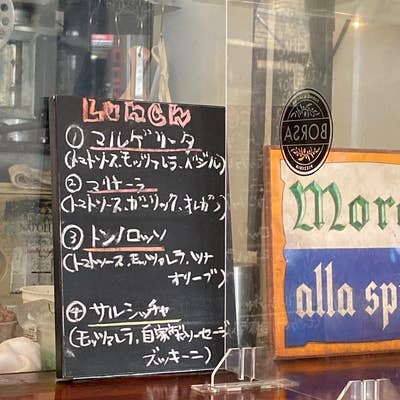 LUNCH
① マルゲリータ
(トマトソース、モッツァレラ、バジル)
② マリナーラ
(トマトソース、ガーリック、オレガノ)
③ トンノロッソ
(トマトソース、モッツァレラ、ツナ
オリーブ)
④ サルシッチャ
(モッツァレラ、自家製ソーセージ
ズッキーニ)
BORSA
PIZZERIA
More
alla sp
NAPOLI